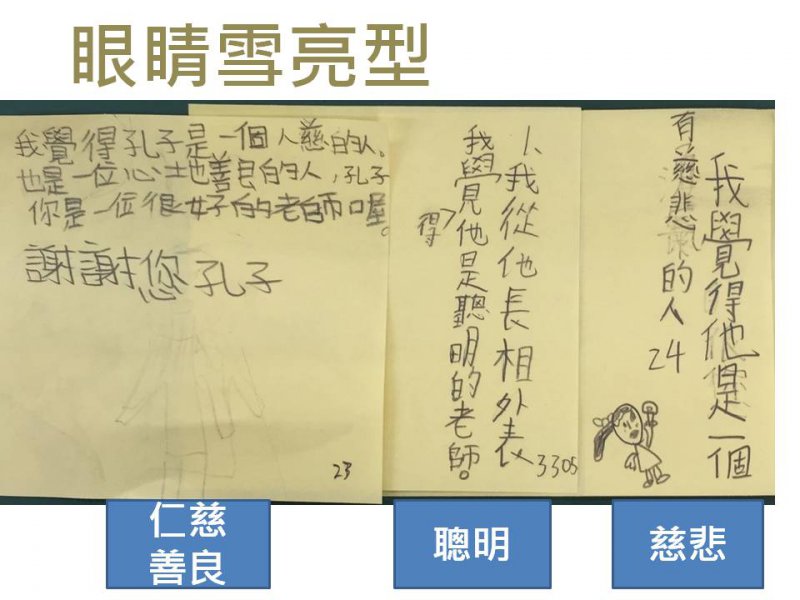 眼睛雪亮型
我覺得孔子是一個人慈的人。
也是一位心地善良的人，孔子
你是一位很好的老師喔。
謝謝您孔子
23
1、我從他長相外表
我覺得他是聰明的老師。
3305
我覺得他是一個
有慈悲的人
24
仁慈
善良
聰明
慈悲